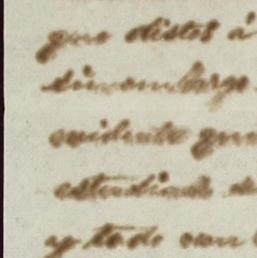 que distes á
sin embargo
evidente que
estudiado de
y todo con